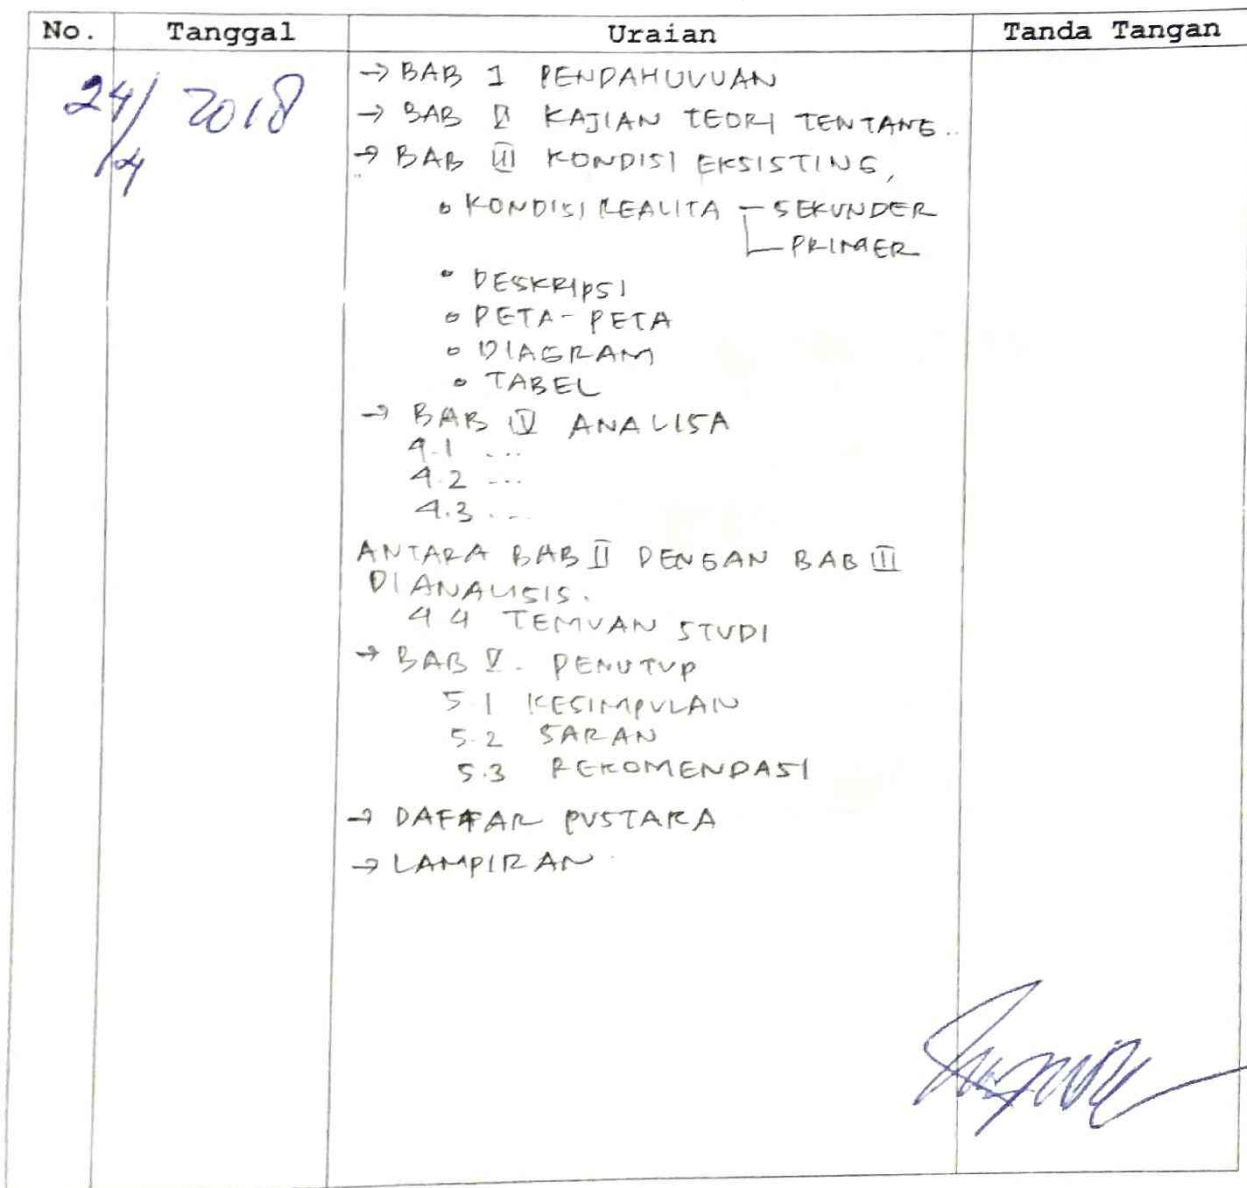 No. Tanggal Uraian Tanda Tangan
24/4 2018
→ BAB I PENDAHULUAN
→ BAB II KAJIAN TEORI TENTANG..
→ BAB III KONDISI EKSISTING,
• KONDISI REALITA - SEKUNDER
PRIMER
• DESKRIPSI
• PETA-PETA
• DIAGRAM
• TABEL
→ BAB IV ANALISA
4.1 ...
4.2 ...
4.3 ...
ANTARA BAB II DENGAN BAB III
DIANALISIS.
4.4 TEMUAN STUDI
→ BAB V. PENUTUP
5.1 KESIMPULAN
5.2 SARAN
5.3 REKOMENDASI
→ DAFTAR PUSTAKA
→ LAMPIRAN